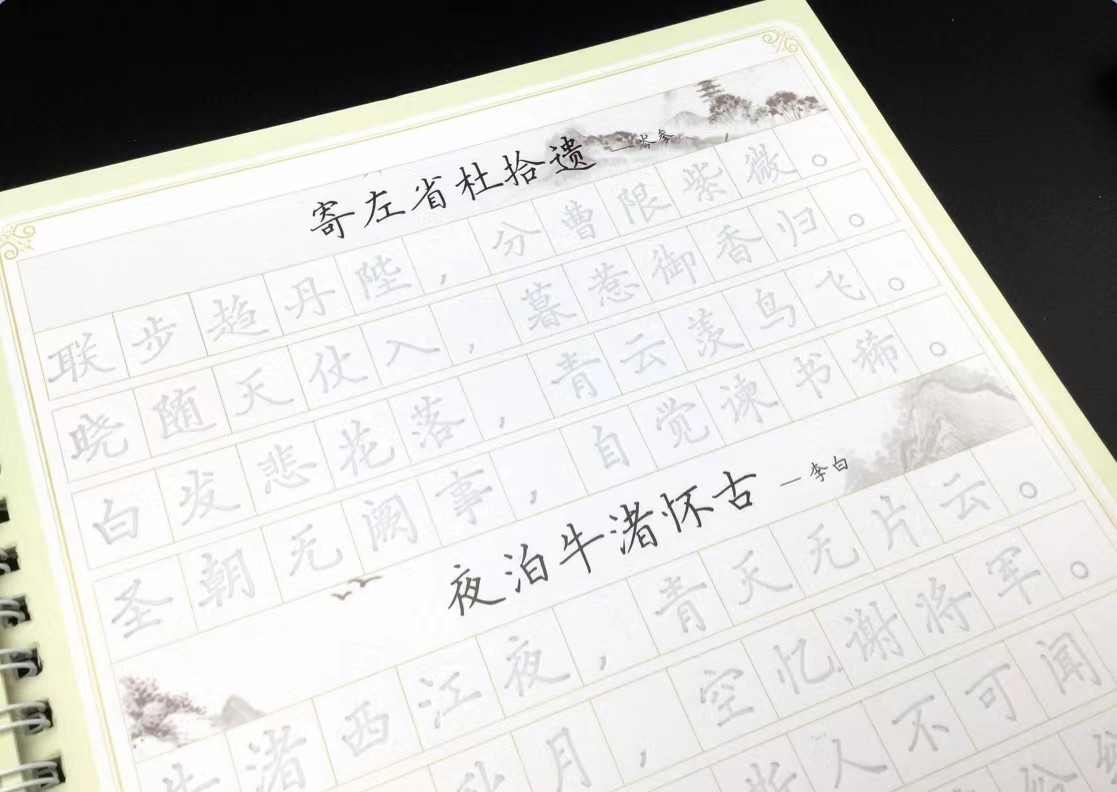 寄左省杜拾遗 —岑参
联步趋丹陛，分曹限紫微。
晓随天仗入，暮惹御香归。
白发悲花落，青云羡鸟飞。
圣朝无阙事，自觉谏书稀。
夜泊牛渚怀古 —李白
牛渚西江夜，青天无片云。
秋月，空忆谢将军。
斯人不可闻